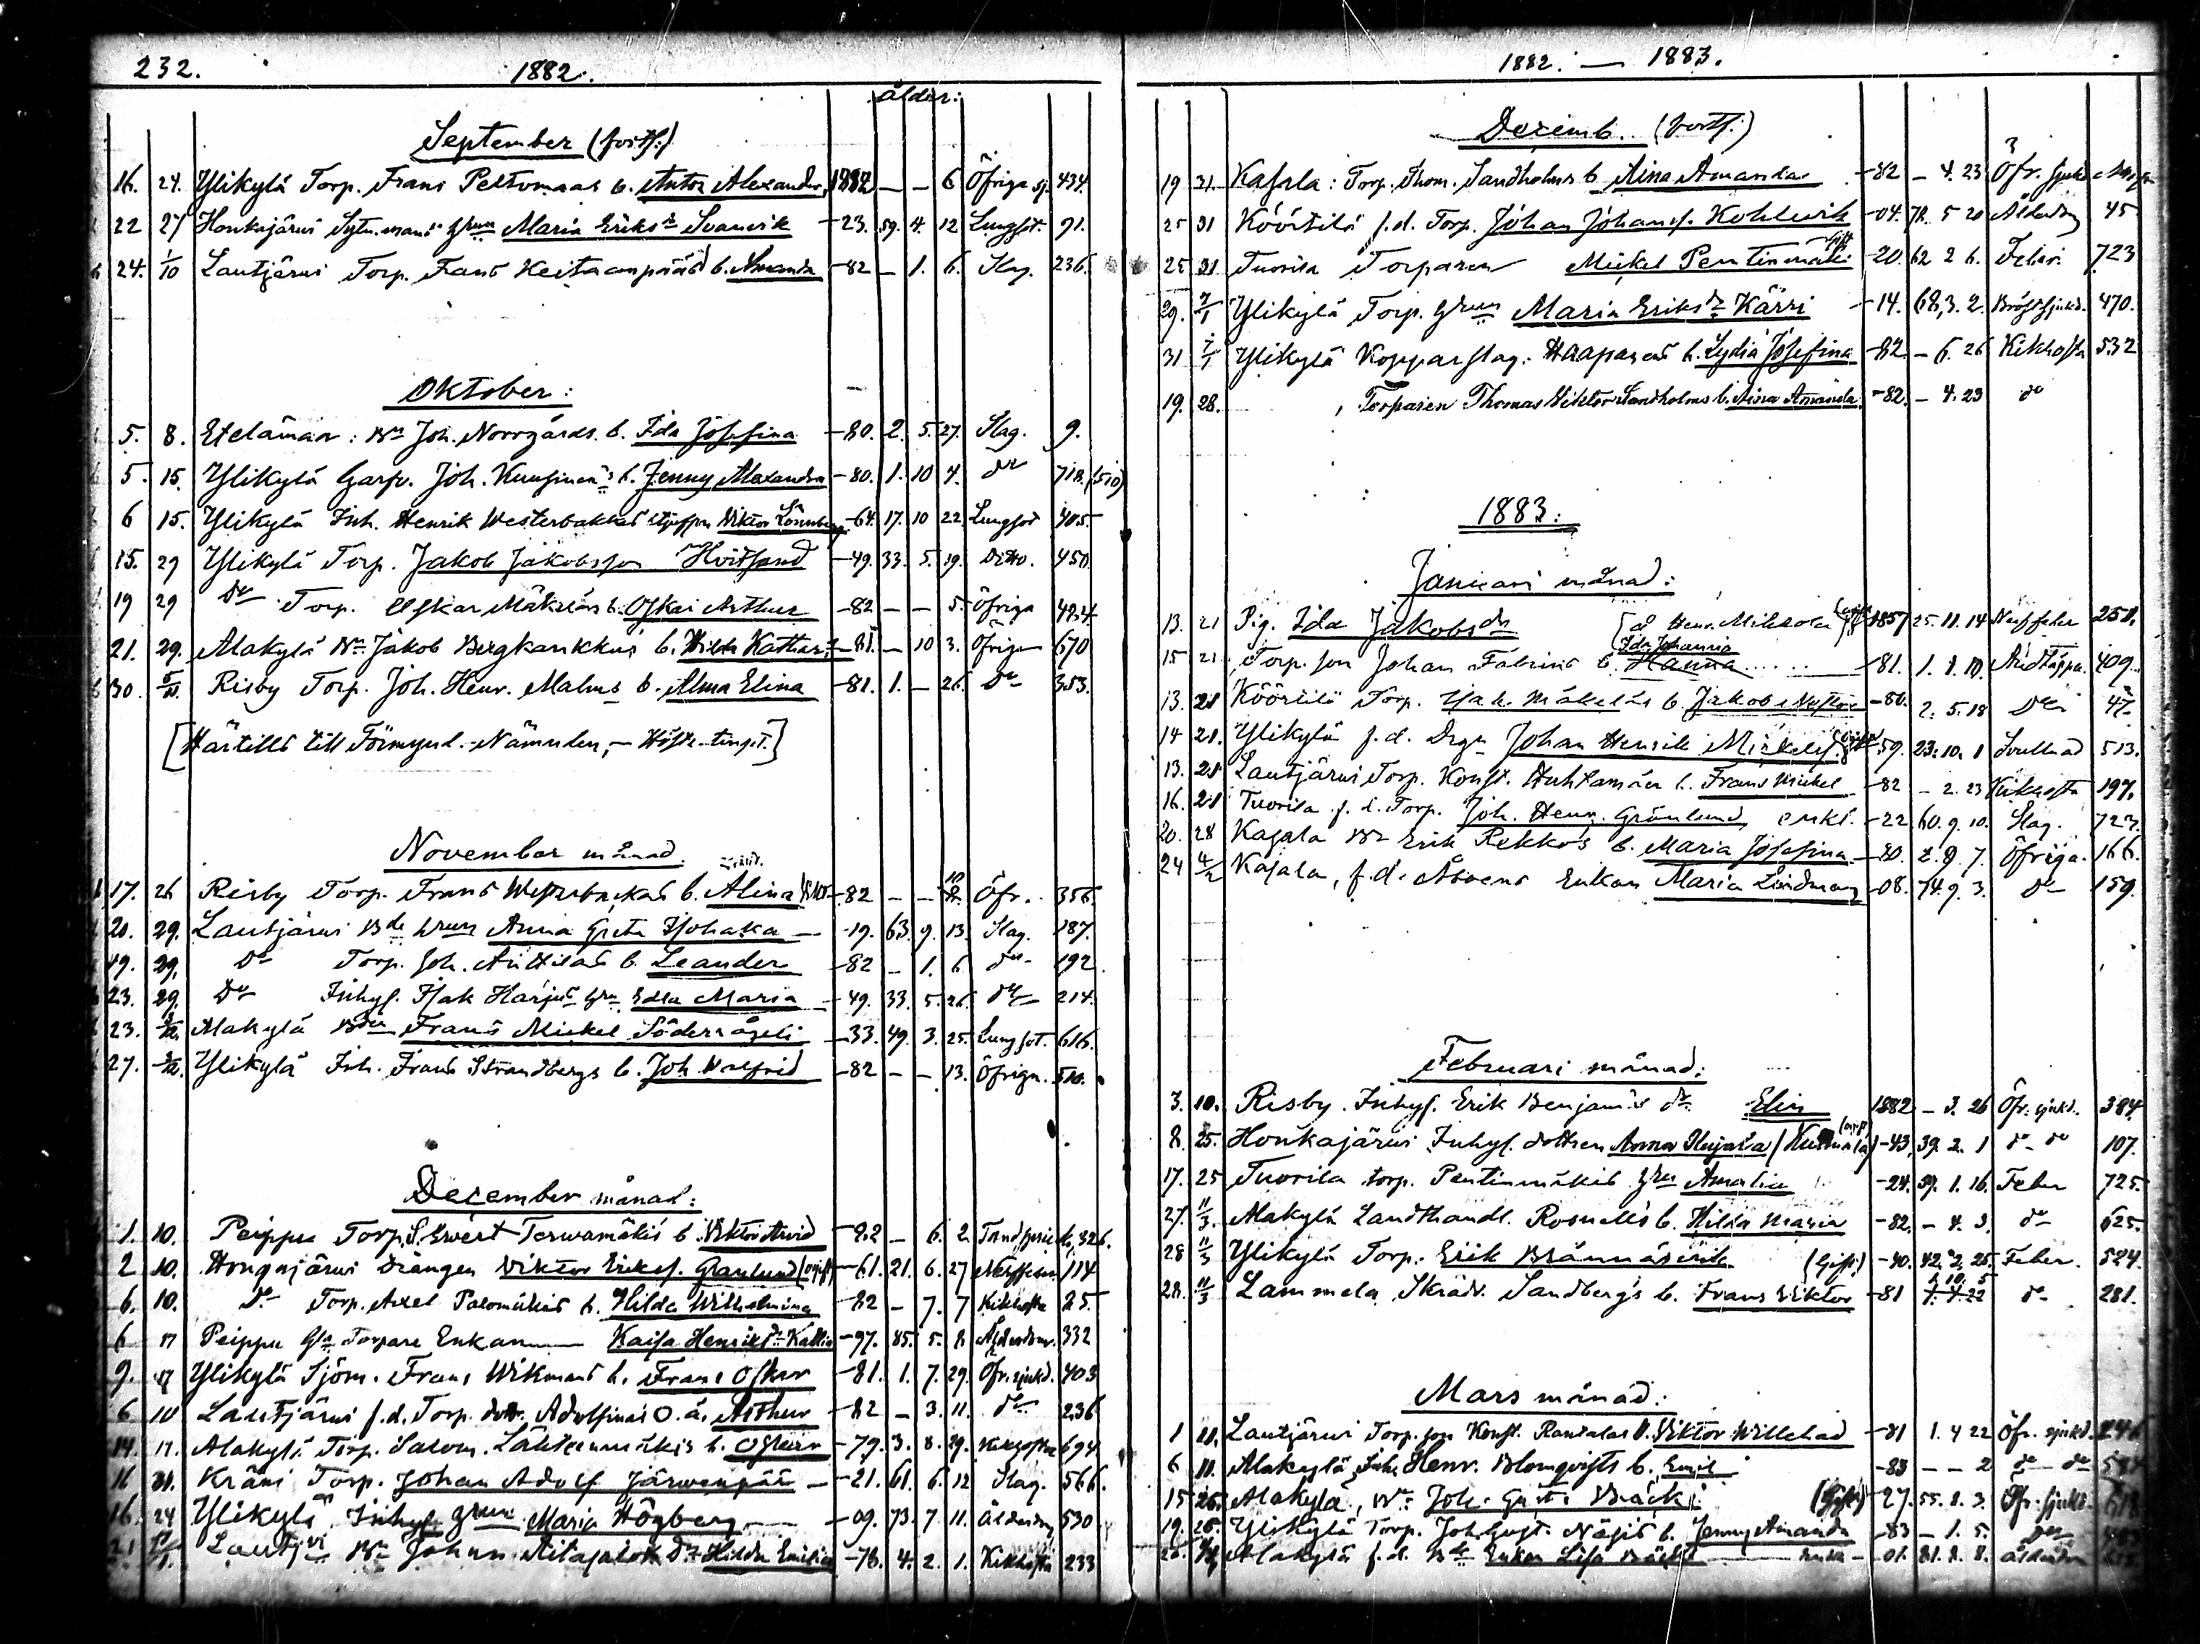 232. 1882.
ålder:
September (forts.)
16. 24. Ylikylä Torp. Frans Peltomaas b. Antor Alexander, 1882 — — 6 Öfriga sj. 434.
22 27 Honkajärwi Hrun Maria Eriksdr Svanvik —23. 59. 4. 12 Lungsot. 91.
24. 1/10 Lautjärwi Torp. Frans Keitaanpääs b. Amanda —82 — 1. 6. Slag. 236.
Oktober:
5. 8. Etelämaa: Bn Joh. Norrgårds. b. Ida Josefina —80. 2. 5. 27. Slag. 9.
5. 15. Ylikylä Joh. Kuusinens b. Jenny Alexandra —80. 1. 10 4. do 718. (510)
6 15. Ylikylä Inh. Henrik Westerbakkas Viktor Lönnberg —64. 17. 10 22. Lungsot 405.
15. 29 Ylikylä Torp. Jakob Jakobsson Hvitsand —49. 33. 5. 19. Ditto. 450.
19 29 Do Torp. Oskar Mäkeläs b. Oskar Arthur —82 — — 5. Öfriga 424
21. 29. Alakylä Bn Jakob Bergkankkus b. Hilda Kathar. —81. — 10 3. Öfriga 670
30. 5/11. Risby Torp. Joh. Henr. Malms b. Alma Elina —81. 1. — 26. Do 353.
[Härtills till Förmynd.-Nämnden, — Höste-tinget.]
November månad.
17. 26 Risby Torp. Frans Westerbackas b. Alina —82 — — Öfr. 356.
20. 29. Lautjärwi Bde hrun Anna Greta Isohaka — —19. 63. 9. 13. Slag. 187.
19. 29. Do Torp. Joh. Anttilas b. Leander —82 — 1. 6. do 192
23. 29. Do Inhys. Isak Harjus hru Edla Maria —49. 33. 5. 26. do 214.
23. 3/12. Alakylä Bden Frans Mickel Söderrågeli —33. 49. 3. 25. Lungsot. 616.
27. 3/12. Ylikylä Inh. Frans Strandbergs b. Joh Walfrid —82 — — 13. Öfriga. 510.
December månad:
1. 10. Peippu Torp. S. Ewert Terwamäkis b. Viktor Arvid —82 — 6. 2. 326.
2 10. Hongajärwi Drängen Viktor Eriks. Granlund (ogift) —61. 21. 6. 27 Nerffeber 114
6. 10. Do Torp. Axel Palomäkis b. Hilda Wilhelmina —82 — 7. 7 Kikhosta 25.
6 17 Peippu Torpare Enkan Kaisa Henriksdr Kallio —97. 85. 5. 8. Ålderdom. 332
9. 17 Ylikylä Sjöm. Frans Wikmans b. Frans Oskar —81. 1. 7. 29. Öfr. sjukd. 403
6 10 Lautjärwi f.d. Torp. dott. Adolfinas O. ä. Arthur —82 — 3. 11. do 236
14. 17. Alakylä Torp. Salom. Lähteenmäkis b. Oskar —79. 3. 8. 29. Kikhosta 694
16 31. Kräni Torp. Johan Adolf Järwenpää — —21. 61. 6. 12 Slag. 566.
16. 24 Ylikylä Inhys hrun Maria Högberg — —09. 73. 7 11. Ålderdom 530
21 Lautjwi Bn Johan Aitasalos Dr Hilda Emilia —78. 4. 2. 1. Kikhosta 233
1882. — 1883.
Decemb. (forts.)
19 31. Kasala: Torp. Thom. Sandholms b. Aina Amanda —82 — 4. 23 Öfr. sjukd
25 31 Köörtilä f.d. Torp. Johan Johanss. Kohlwik —04. 78. 5 20 Ålderdom 45
25 31. Tuorila Torparen Mickel Pentinmäki gift —20. 62 2 6. Feber. 723
29. 7/1 Ylikylä Torp. hrun Maria Eriksdr Kärri —14. 68. 3. 2. Bröstsjukd. 470.
31 7/1 Ylikylä Kopparslag. Haapasens b. Lydia Josefina —82 — 6. 26 Kikhosta 532
19. 28. Torparen Thomas Viktor Sandholms b. Aina Amanda —82. — 4. 23 do
1883:
Januari månad:
13. 21 Pig. Ida Jakobsdr [af Henr. Mikkola] 1857 25. 11. 14 Nerffeber 251.
15 21. Torp. son Johan Fabrins b. Ida Johanna Hanna —81. 1. 1. 10. Andtäppa. 409.
13. 21 Köörtilä Torp. Isak Mäkeläs b. Jakob Nestor —80. 2. 5. 18 Do 47.
14 21. Ylikylä f.d. Drgn Johan Henrik Mickelss. —59. 23. 10. 1 Svullnad 513.
13. 21 Lautjärwi Torp. Konst. Huhtamäen b. Frans Mickel —82 — 2. 23 Kikhosta 197.
16. 21 Tuorila f.d. Torp. Joh. Henr. Grönlund, enkl. —22 60. 9. 10. Slag. 723.
20. 28 Kasala Bn Erik Rekkos b. Maria Josefina —80. 2. 9 7. Öfriga. 166.
24 4/2 Kasala, f.d. Åboens Enkan Maria Lindman —08. 74. 9 3. Do 159.
Februari månad:
3. 10. Risby. Inhys. Erik Benjamins dr. Elin 1882 — 3. 26 Öfr. sjukd. 384
8. 25. Honkajärwi Inhys. dottren Anna —43 39. 2. 1 do do 107.
17. 25 Tuorila torp. Pentinmäkis hru Amalia —24. 59. 1. 16. Feber 725.
27. 11/3. Alakylä Landthandl. Rosnells b. Hilda Maria —82. — 4. 3. do 625.
28 11/3 Ylikylä Torp. Erik Brännäsvik (Gift) —40. 42. 2. 26. Feber. 524
28. 11/3 Lammela Skrädd. Sandbergs b. Frans Viktor —81 1. 10. 5 do 281.
Mars månad:
1 11. Lautjärwi Torp. son Konst. Randalas b. Viktor Willehad —81 1. 4 22 Öfr. sjukd.
6 11. Alakylä Inh. Henr. Blomqvists b. Emil —83 — — 2 do do
15 26. Alakylä, Bn Joh. Gust. Bäck (Gift) —27. 55. 8. 3. Öfr. sjukd.
19. 26. Ylikylä Torp. Joh. Gust. Nägis b. Jenny Amanda —83 — 1. 5. do
Alakylä f.d. Bde Enkan Lisa Bäck — Enka — 01. 81. 8. 8. ålderdom